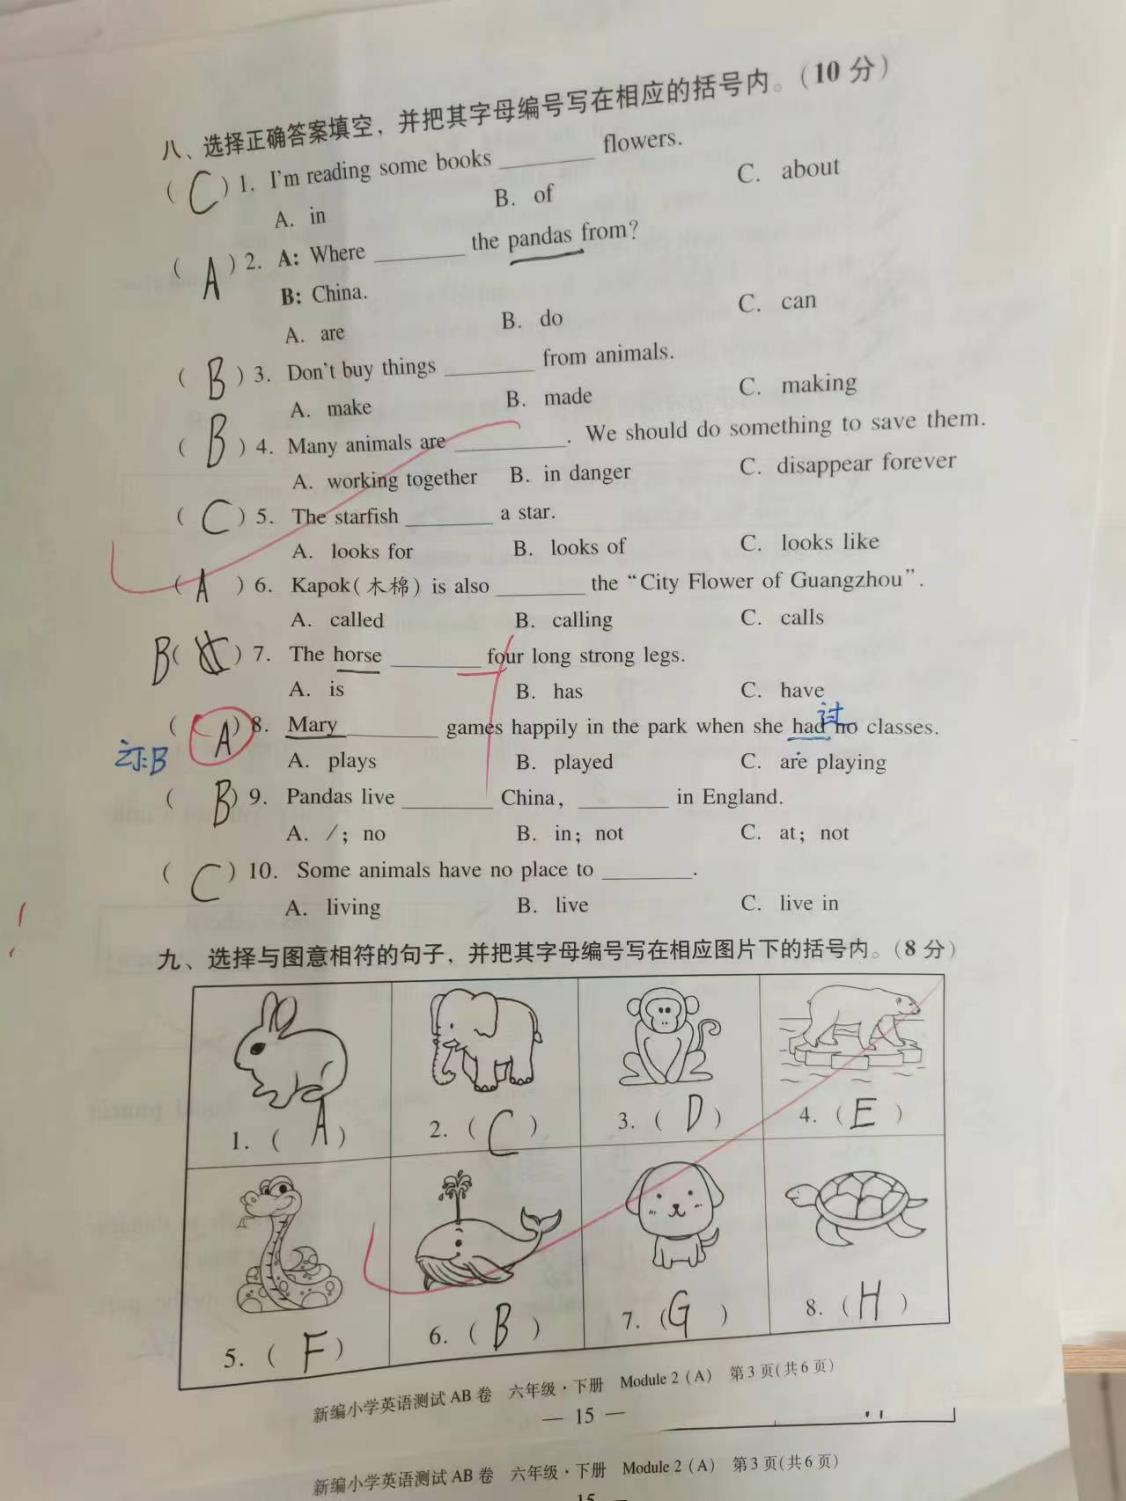 八、选择正确答案填空，并把其字母编号写在相应的括号内。(10 分)
( C ) 1. I'm reading some books ________ flowers.
A. in B. of C. about
( A ) 2. A: Where ________ the pandas from?
B: China.
A. are B. do C. can
( B ) 3. Don't buy things ________ from animals.
A. make B. made C. making
( B ) 4. Many animals are ________. We should do something to save them.
A. working together B. in danger C. disappear forever
( C ) 5. The starfish ________ a star.
A. looks for B. looks of C. looks like
( A ) 6. Kapok(木棉) is also ________ the “City Flower of Guangzhou”.
A. called B. calling C. calls
B ( ) 7. The horse ________ four long strong legs.
A. is B. has C. have
( A ) 8. Mary ________ games happily in the park when she had no classes.
过
订:B
A. plays B. played C. are playing
( B ) 9. Pandas live ________ China, ________ in England.
A. /; no B. in; not C. at; not
( C ) 10. Some animals have no place to ________.
A. living B. live C. live in
九、选择与图意相符的句子，并把其字母编号写在相应图片下的括号内。(8 分)
1. ( A ) 2. ( C ) 3. ( D ) 4. ( E )
5. ( F ) 6. ( B ) 7. ( G ) 8. ( H )
新编小学英语测试 AB 卷 六年级·下册 Module 2 (A) 第 3 页(共 6 页)
— 15 —
新编小学英语测试 AB 卷 六年级·下册 Module 2 (A) 第 3 页(共 6 页)
15 —